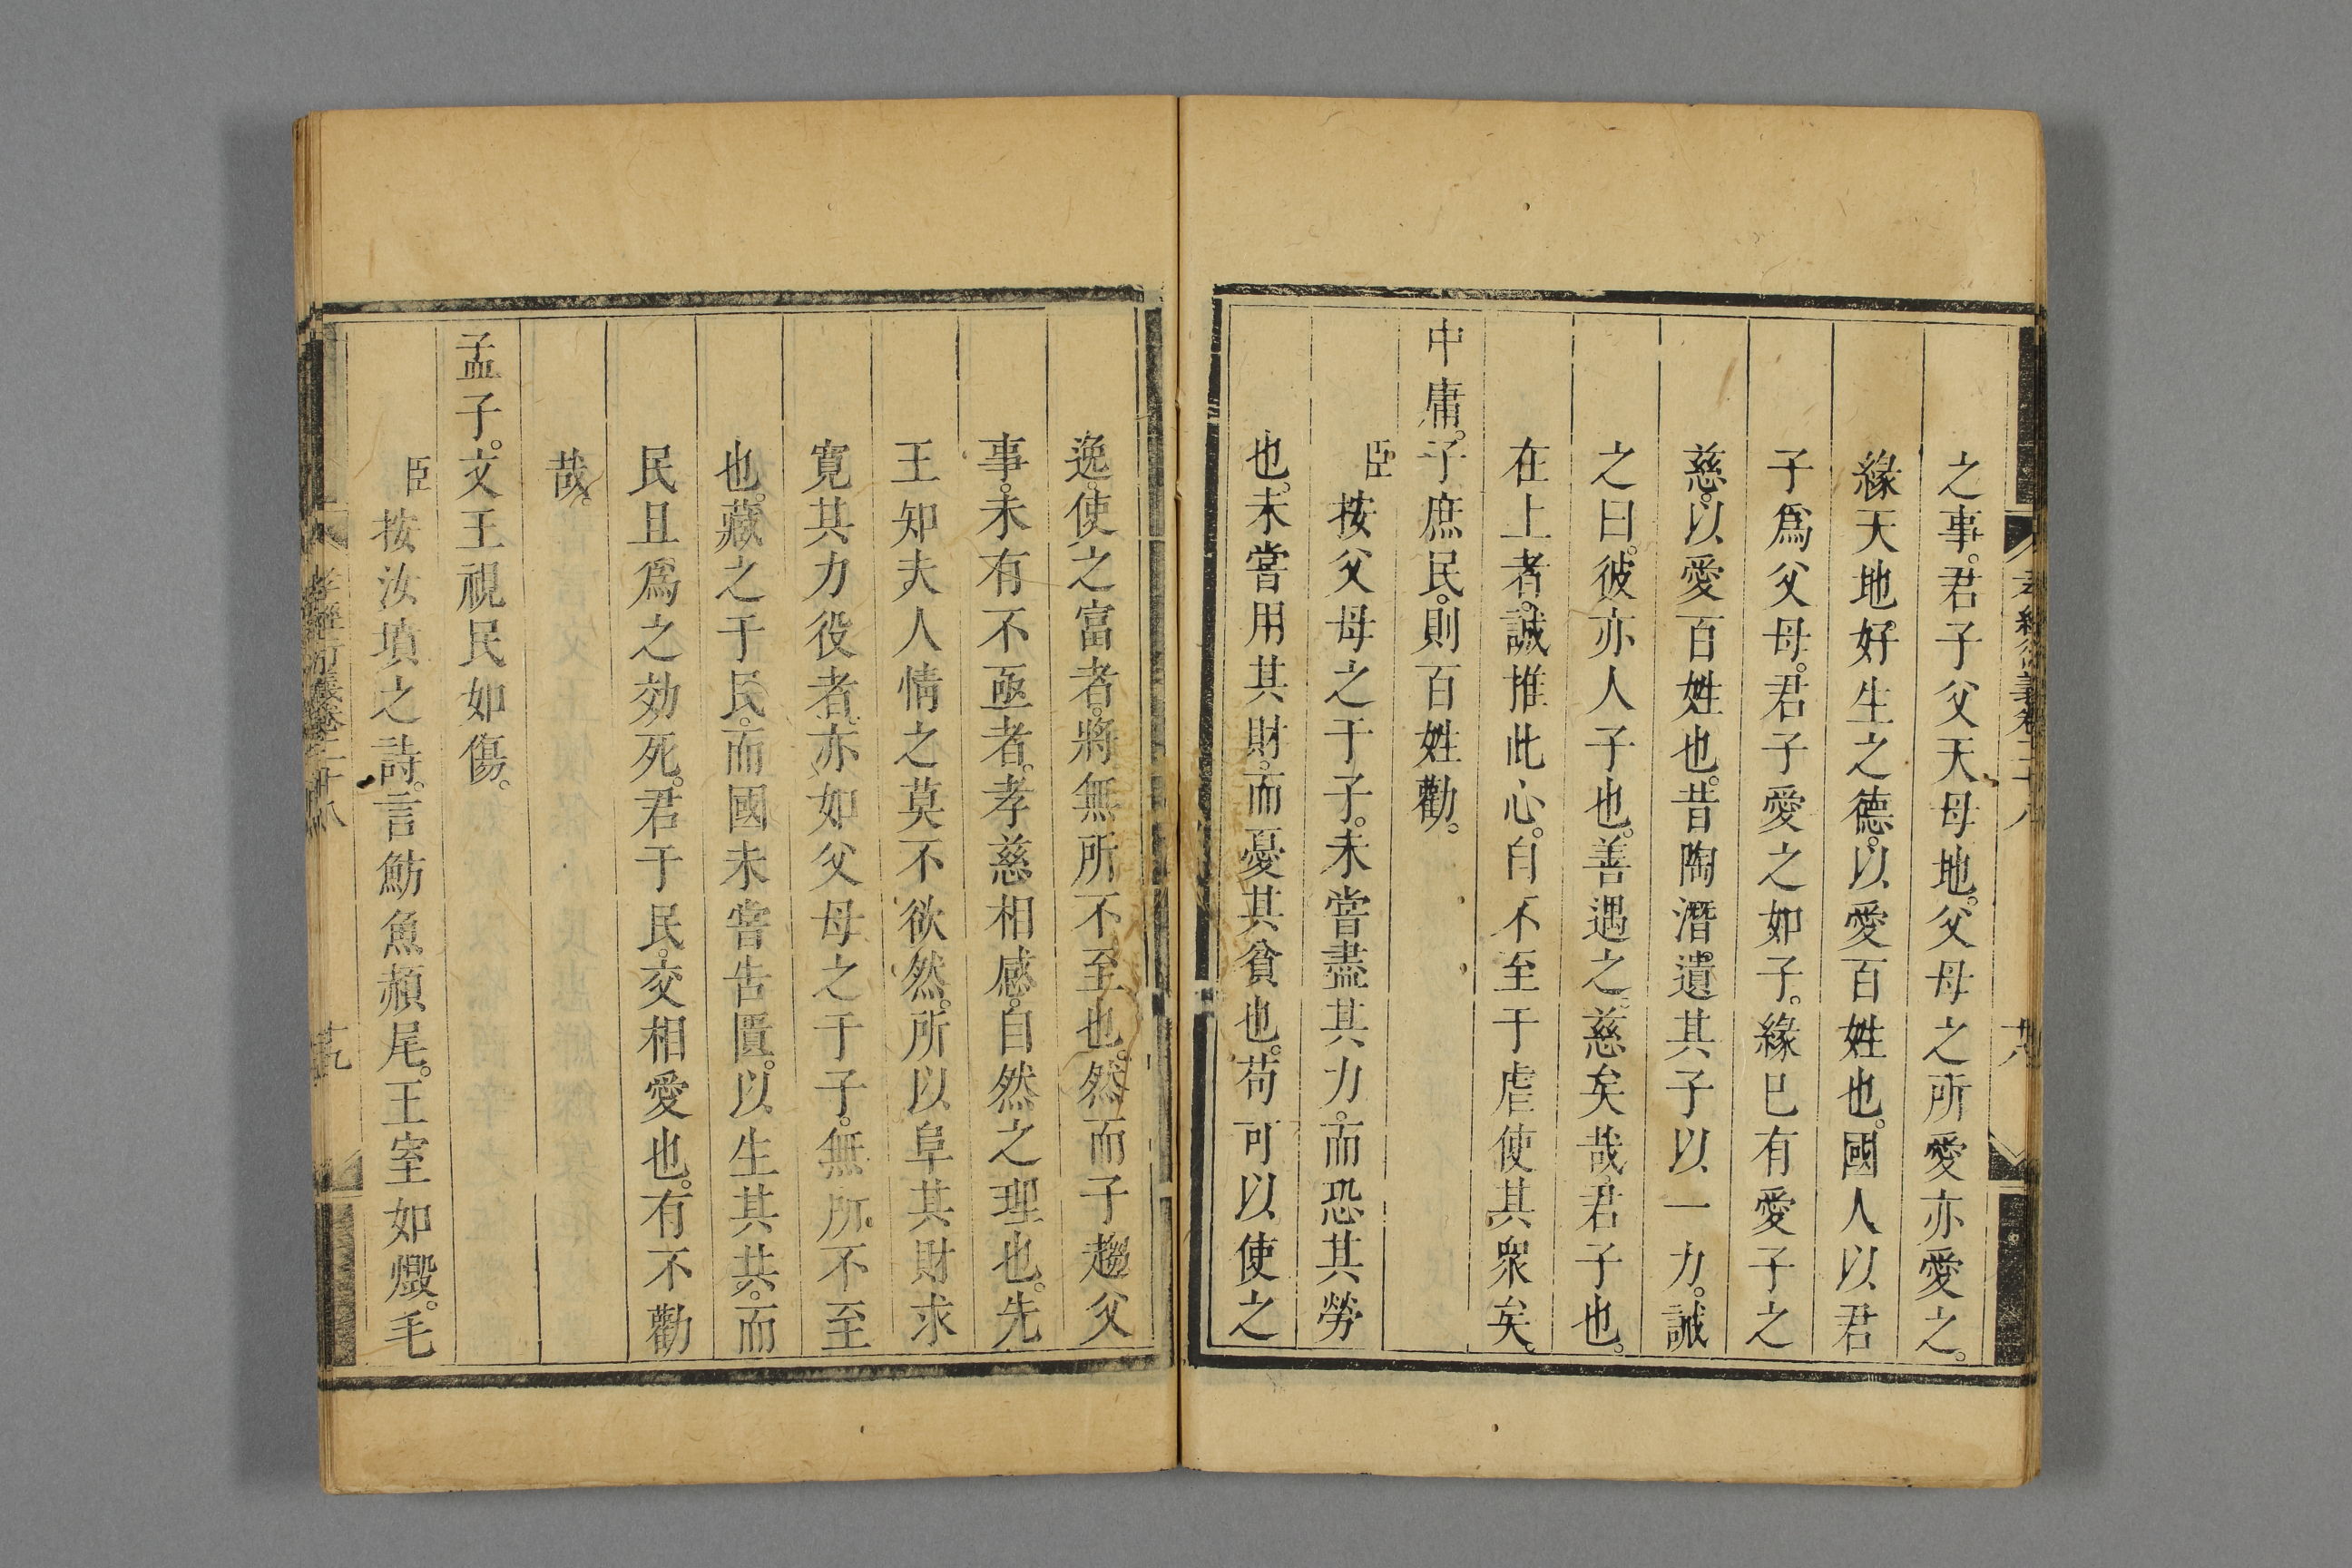 之事。君子父天母地。父母之所愛亦愛之。
緣天地好生之德。以愛百姓也。國人以君
子爲父母。君子愛之如子。緣已有愛子之
慈。以愛百姓也。昔陶潛遺其子以一力。誡
之曰。彼亦人子也。善遇之。慈矣哉。君子也。
在上者。誠推此心。自不至于虐使其衆矣。
中庸。子庶民。則百姓勸。
臣按父母之于子。未嘗盡其力。而恐其勞
也。未嘗用其財。而憂其貧也。苟可以使之
逸使之富者。將無所不至也。然而子趨父
事。未有不亟者。孝慈相感。自然之理也。先
王知夫人情之莫不欲然。所以阜其財求
寬其力役者。亦如父母之于子。無所不至
也。藏之于民。而國未嘗告匱。以生其共。而
民且爲之効死。君于民。交相愛也。有不勸
哉。
孟子。文王視民如傷。
臣按汝墳之詩。言魴魚赬尾。王室如燬。毛
孝經衍義卷二十八